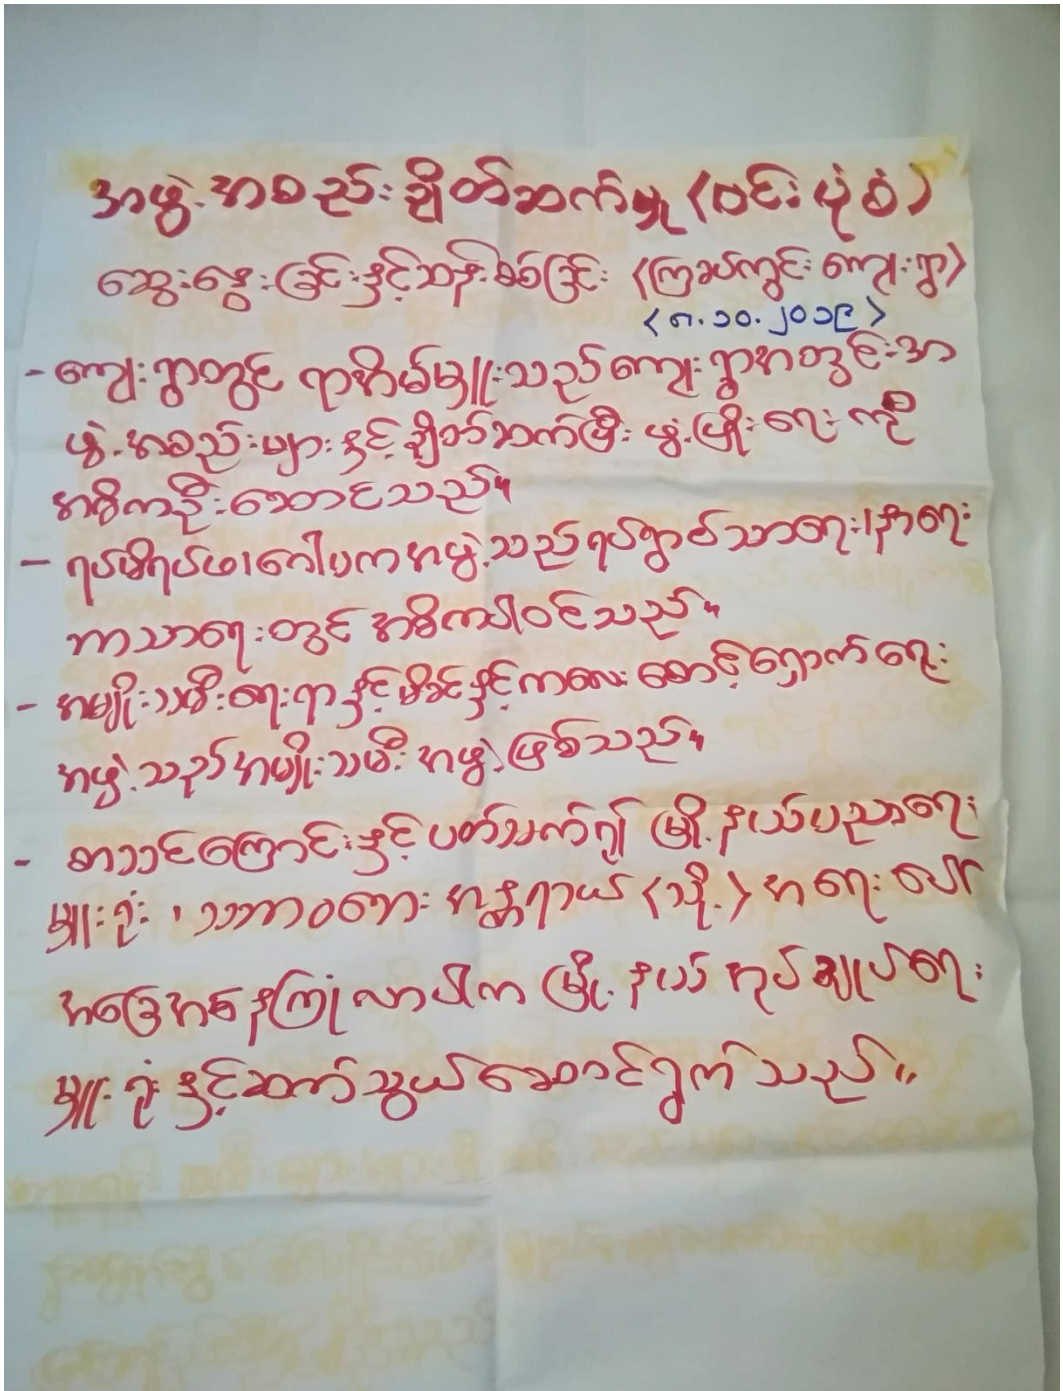 အဖွဲ့အစည်းချိတ်ဆက်မှု (ဝင်းပုံစံ)
ဆွေးနွေးခြင်းနှင့်သန်းစစ်ခြင်း (ကြခတ်ကွင်းကျေးရွာ)
(၈.၁၀.၂၀၁၉)
- ကျေးရွာတွင် ရာအိမ်မှူးသည်ကျေးရွာအတွင်းအ
ဖွဲ့အစည်းများနှင့်ချိတ်ဆက်ပြီး ဖွံ့ဖြိုးရေးကို
အဓိကဦးဆောင်သည်။
- ရပ်မိရပ်ဖ၊ဂေါပကအဖွဲ့သည်ရပ်ရွာဝ်သာရေး၊နာရေး
ဘာသာရေးတွင် အဓိကပါဝင်သည်။
- အမျိုးသမီးရေးရာနှင့်မိခင်နှင့်ကလေး စောင့်ရှောက်ရေး
အဖွဲ့သည်အမျိုးသမီးအဖွဲ့ဖြစ်သည်။
- စာသင်ကြောင်းနှင့်ပတ်သက်၍ မြို့နယ်ပညာရေး
မှူးရုံး ၊ သဘာဝဘေး အန္တရာယ် (သို့) အရေးပေါ်
အခြေအနေကြုံလာပါက မြို့နယ် အုပ်ချုပ်ရေး
မှူးရုံးနှင့်ဆက်သွယ်ဆောင်ရွက်သည်။